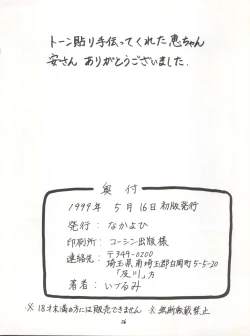 トーン貼り手伝ってくれた恵ちゃん
安さん ありがとうございました.
奥付
1999年 5月 16日 初版発行
発行: なかよひ
印刷所: コーシン出版様
連絡先: 〒349-0200
埼玉県南埼玉郡白岡町5-5-20
「及川」方
著者: いづるみ
※ 18才未満の方には販売できません ※ 無断転載禁止
26